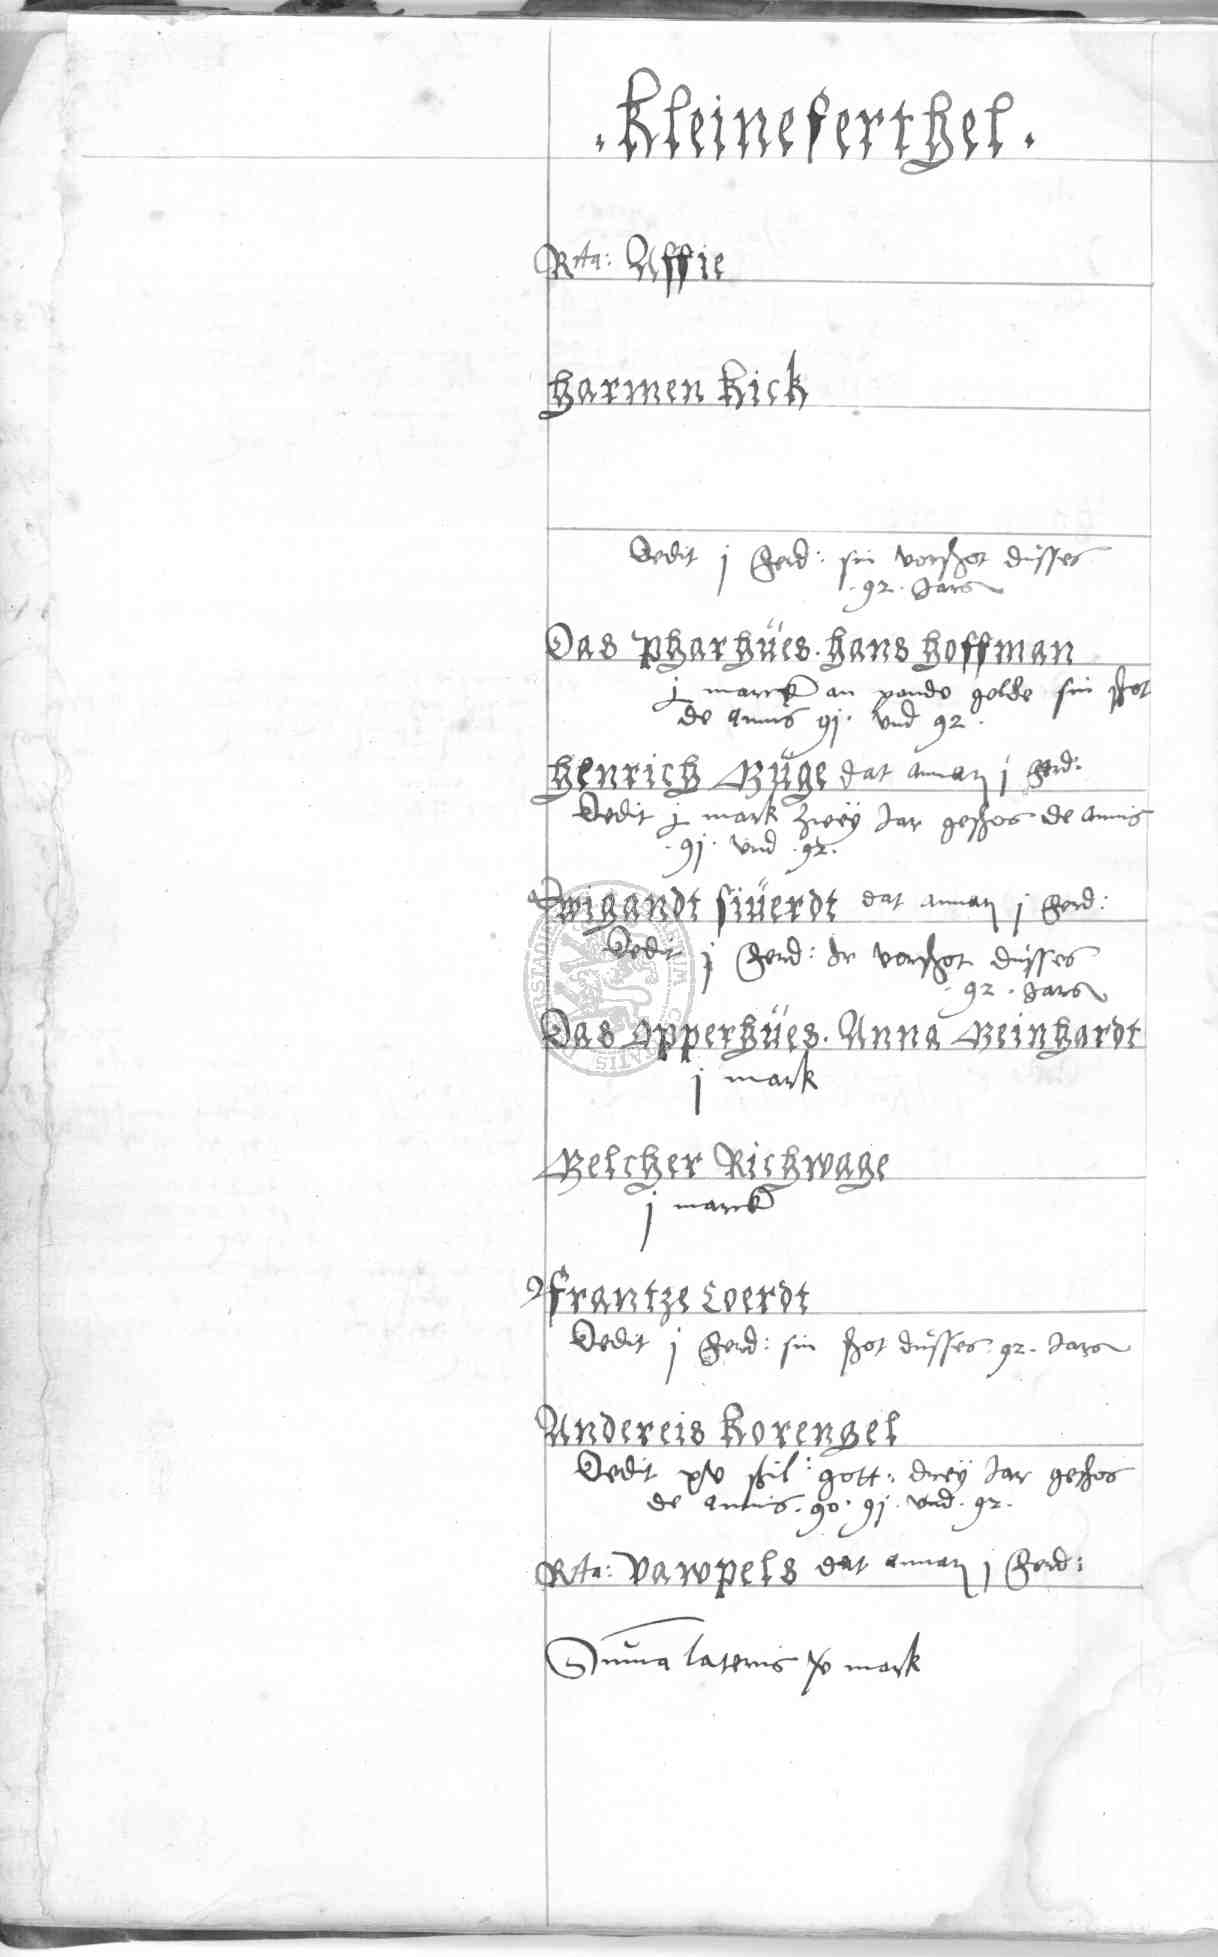 . Kleineferthel .
Rta: Affie
Harmen Kick
Dedit j ferd: sin vorschot düsses
. 92 . Jars
Das Pharhües. Hans Hoffman
j marck an gelde sin schot
de annis 91. und 92.
Henrich Büge dat annarj j ferd:
Dedit j mark zweÿ Jar geschos de annis
. 91. und . 92.
Wigandt Siüerdt dat annarj j ferd:
Dedit j ferd: Ir vorschot düsses
. 92 . Jars
Das Opperhües. Anna Beinhardt
j mark
Belcher Richwage
j marck
Frantze Coerdt
Dedit j ferd: sin schot düsses. 92. Jars
Andereis Korengel
Dedit xv schil: gott: dreÿ Jar geschos
de annis. 90. 91. und. 92.
Rta: Vawpels dat annarj j ferd:
Suma lateris mark